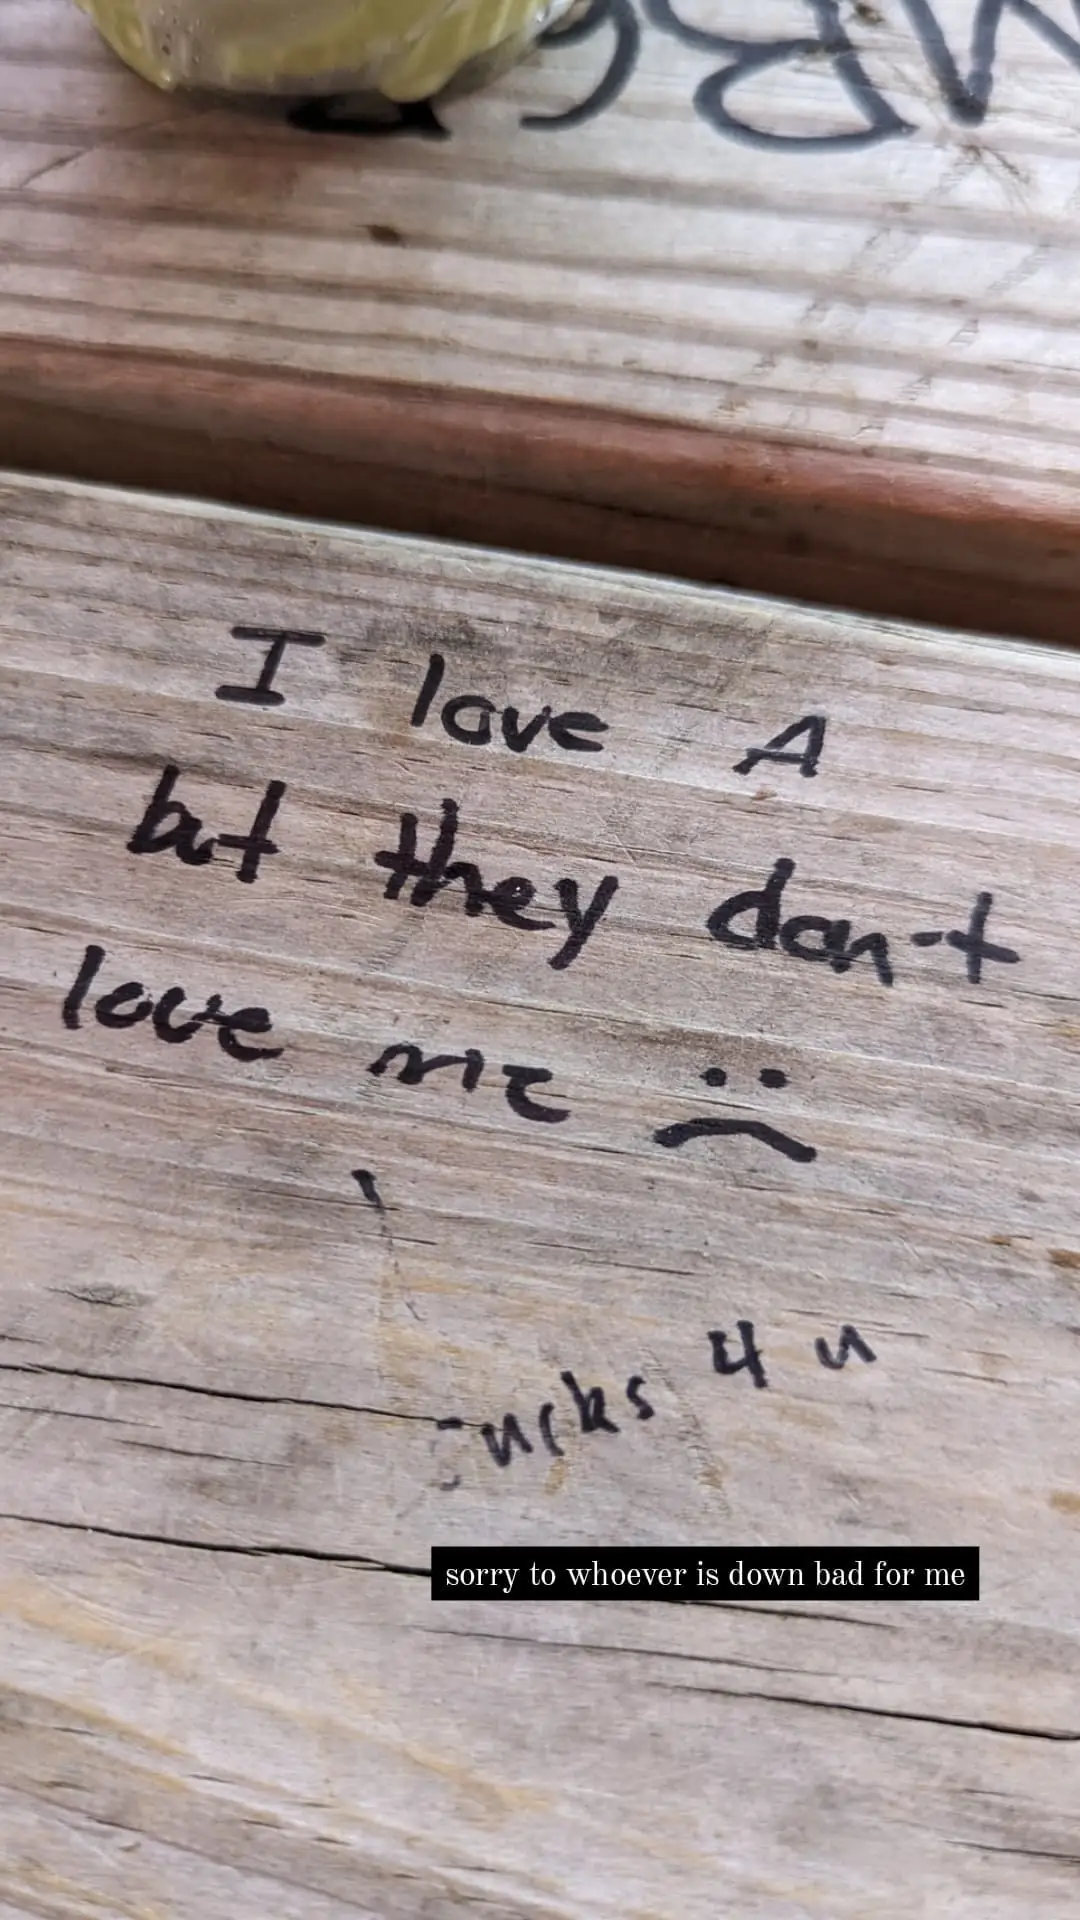 I love A
but they don't
love me :(
sucks 4 u
sorry to whoever is down bad for me